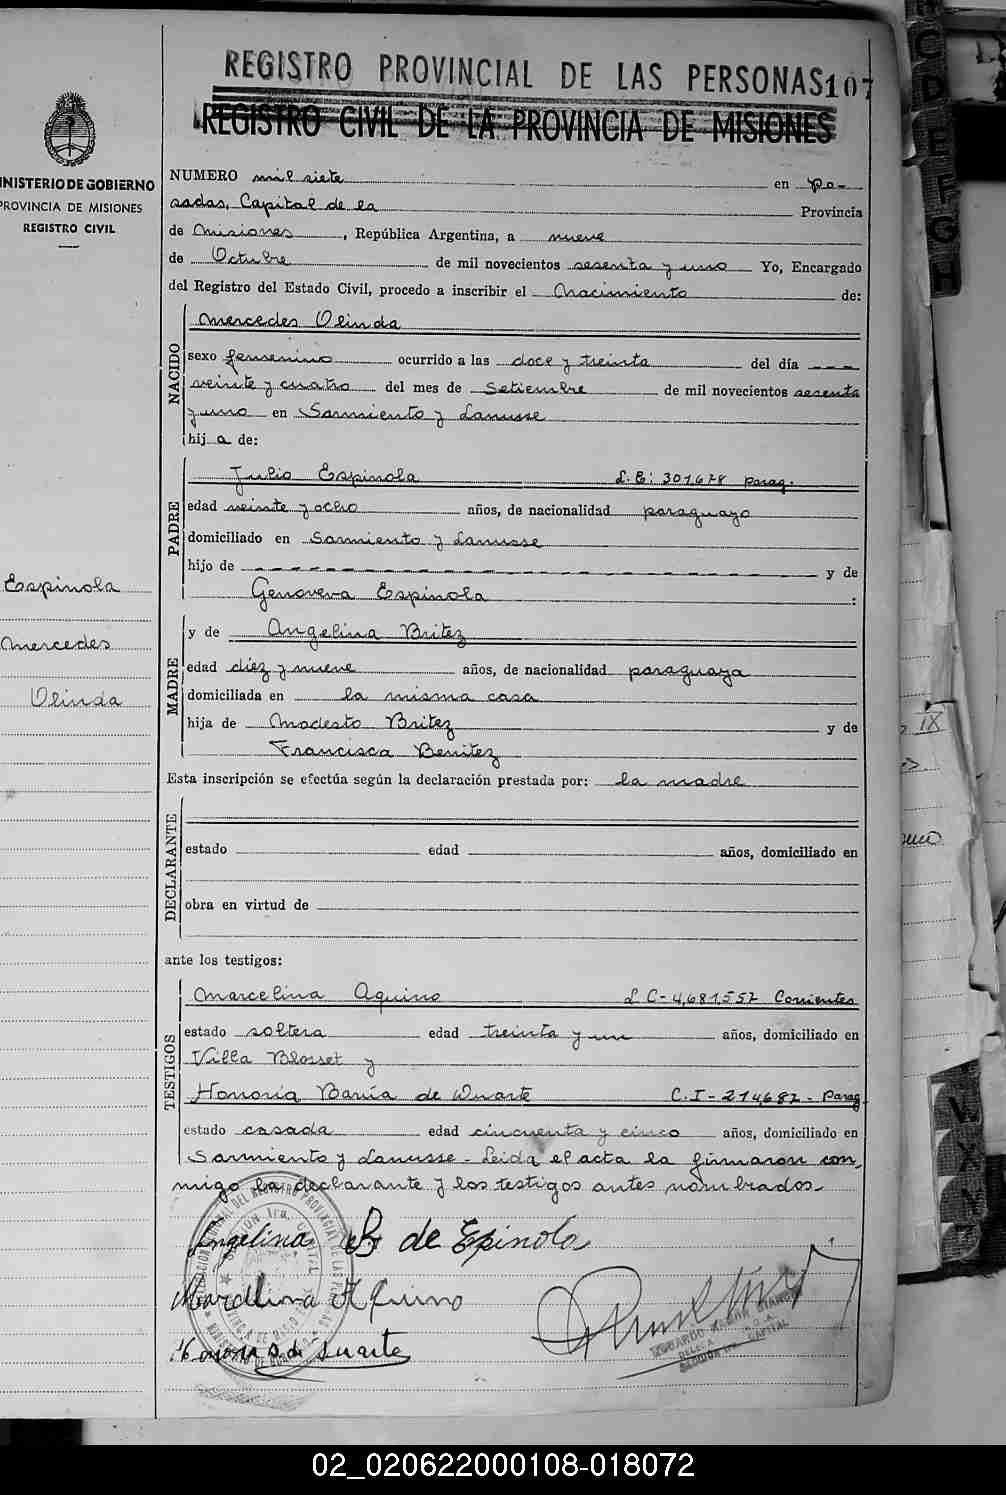 REGISTRO PROVINCIAL DE LAS PERSONAS 107
REGISTRO CIVIL DE LA PROVINCIA DE MISIONES
NISTERIO DE GOBIERNO
PROVINCIA DE MISIONES
REGISTRO CIVIL
Espinola
Mercedes
Olinda
NUMERO mil siete en Po-
sadas, Capital de la Provincia
de Misiones, República Argentina, a nueve
de Octubre de mil novecientos sesenta y uno Yo, Encargado
del Registro del Estado Civil, procedo a inscribir el Nacimiento de:
NACIDO
Mercedes Olinda
sexo femenino ocurrido a las doce y treinta del día ---
veinte y cuatro del mes de Setiembre de mil novecientos sesenta
y uno en Sarmiento y Lanusse
hij a de:
PADRE
Julio Espinola L.E: 301,678 parag.
edad veinte y ocho años, de nacionalidad paraguayo
domiciliado en Sarmiento y Lanusse
hijo de - - - - - - - - - - y de
Genoveva Espinola :
MADRE
y de Angelina Britez
edad diez y nueve años, de nacionalidad paraguaya
domiciliada en la misma casa
hija de Modesto Britez y de
Francisca Benitez
Esta inscripción se efectúa según la declaración prestada por: la madre
DECLARANTE
estado edad años, domiciliado en
obra en virtud de
ante los testigos:
TESTIGOS
Marcelina Aquino L C- 4,681,557 Corrientes
estado soltera edad treinta y un años, domiciliado en
Villa Blosset y
Honoria Bania de Duarte C.I- 214,687- Parag
estado casada edad cincuenta y cinco años, domiciliado en
Sarmiento y Lanusse- Leida el acta la firmaron con-
migo la declarante y los testigos antes nombrados-
Angelina B de Epinola
Marcelina Aquino
Honoria B. de Duarte
CAPITAL
IX
02_020622000108-018072